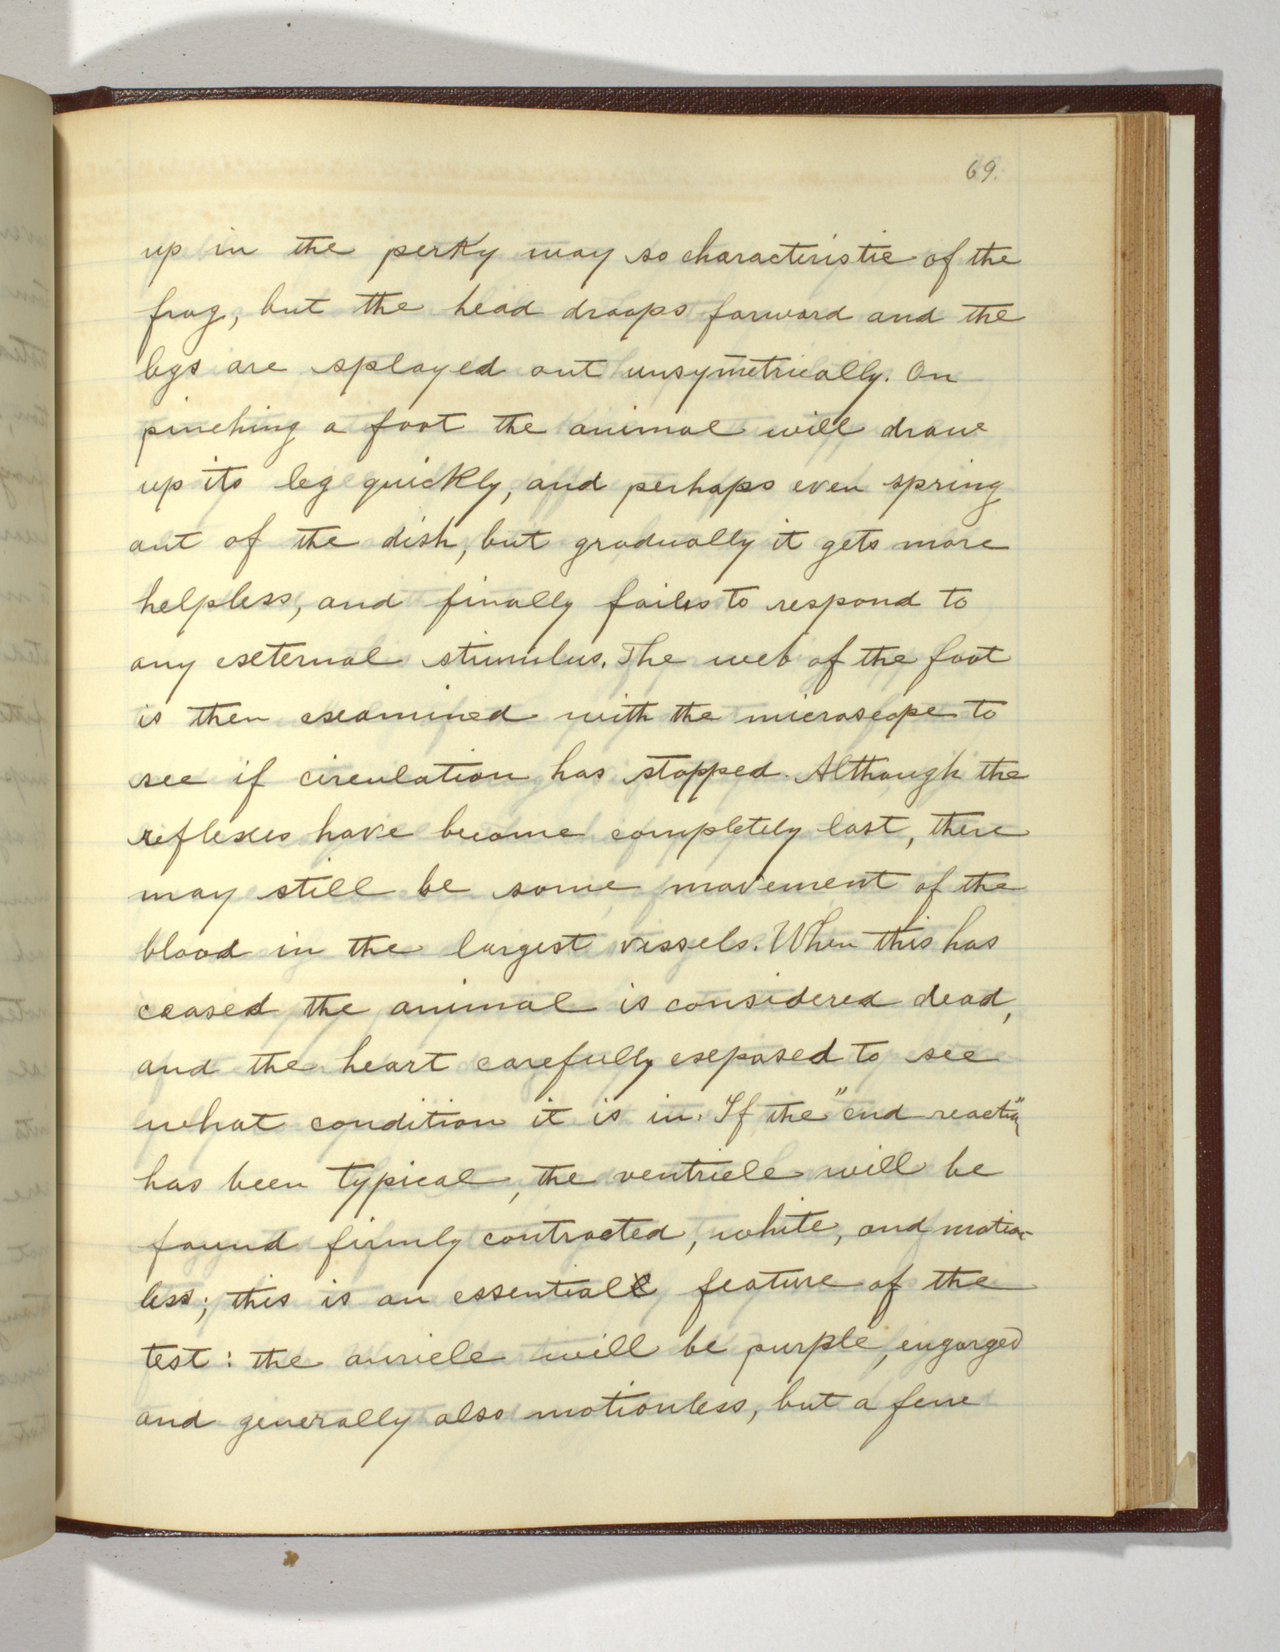 69.
up in the perky way so characteristic of the
frog, but the head droops forward and the
legs are splayed out unsymetrically. On
pinching a foot the animal will draw
up its leg quickly, and perhaps even spring
out of the dish, but gradually it gets more
helpless, and finally fails to respond to
any external stimulus. The web of the foot
is then examined with the microscope to
see if circulation has stopped. Although the
reflexes have become completely lost, there
may still be some movement of the
blood in the largest vessels. When this has
ceased the animal is considered dead,
and the heart carefully exposed to see
what condition it is in. If the "end reaction"
has been typical, the ventricle will be
found firmly contracted, white, and motion-
less; this is an essential feature of the
test: the auricle will be purple, engorged
and generally also motionless, but a few